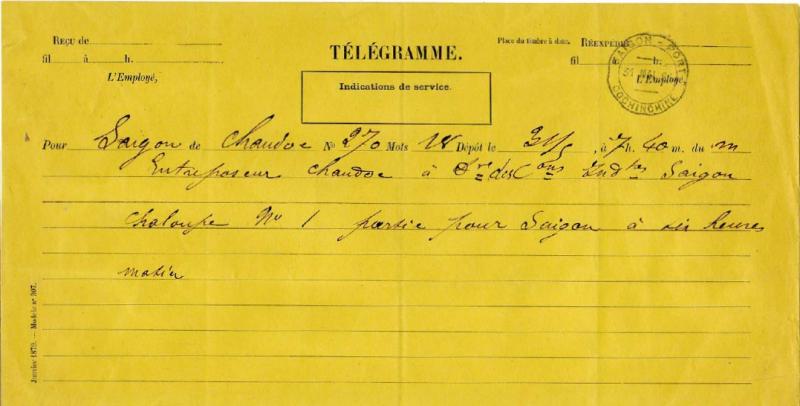 Reçu de
Place du timbre à date.
Réexpédié
fil à h.
TÉLÉGRAMME.
fil h.
L'Employé,
L'Employé,
SAIGON - PORT
31 MAI
COCHINCHINE
Indications de service.
Pour Saigon de Chaudoc No 270 Mots 18 Dépôt le 31/5 à 7h. 40 m. du m
Entreposeur Chaudoc à Dre des Cons Indtes Saigon
chaloupe No 1 partie pour Saigon à six heures
matin
Janvier 1879. — Modèle no 307.